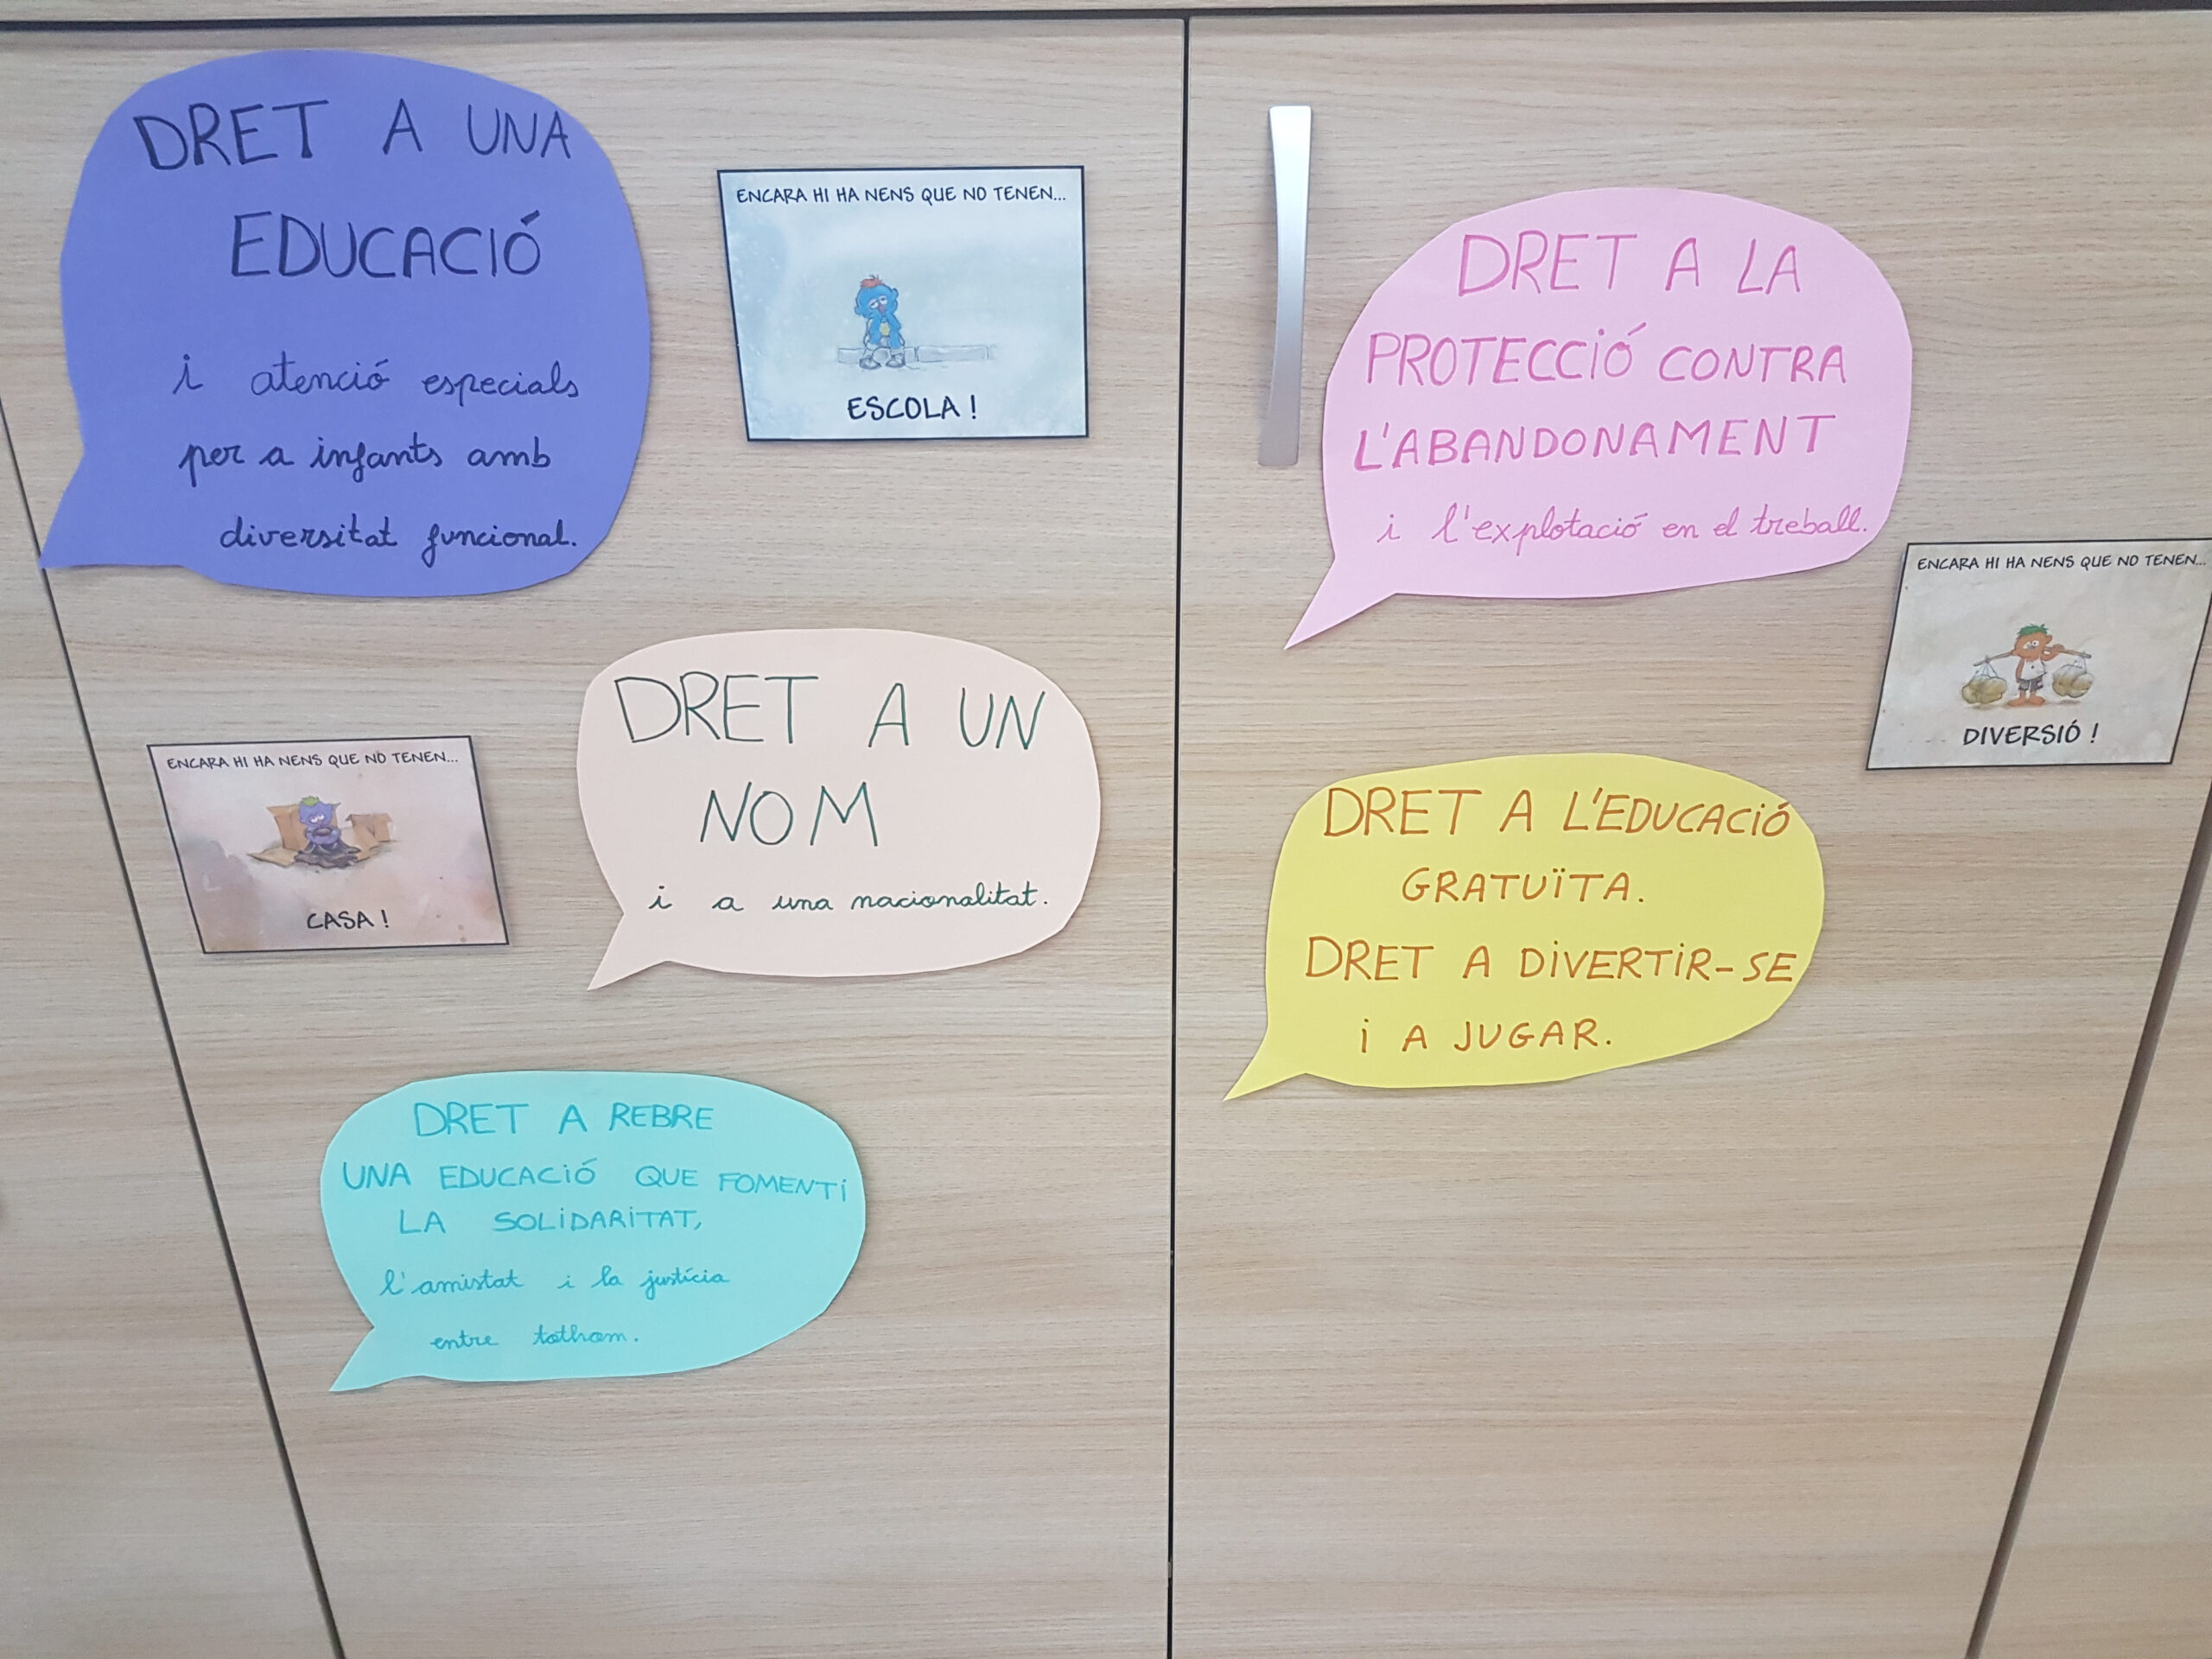 DRET A UNA
EDUCACIÓ
i atenció especials
per a infants amb
diversitat funcional.
ENCARA HI HA NENS QUE NO TENEN...
ESCOLA !
ENCARA HI HA NENS QUE NO TENEN...
CASA !
DRET A UN
NOM
i a una nacionalitat.
DRET A REBRE
UNA EDUCACIÓ QUE FOMENTI
LA SOLIDARITAT,
l'amistat i la justícia
entre tothom.
DRET A LA
PROTECCIÓ CONTRA
L'ABANDONAMENT
i l'explotació en el treball.
ENCARA HI HA NENS QUE NO TENEN...
DIVERSIÓ !
DRET A L'EDUCACIÓ
GRATUÏTA.
DRET A DIVERTIR-SE
i A JUGAR.